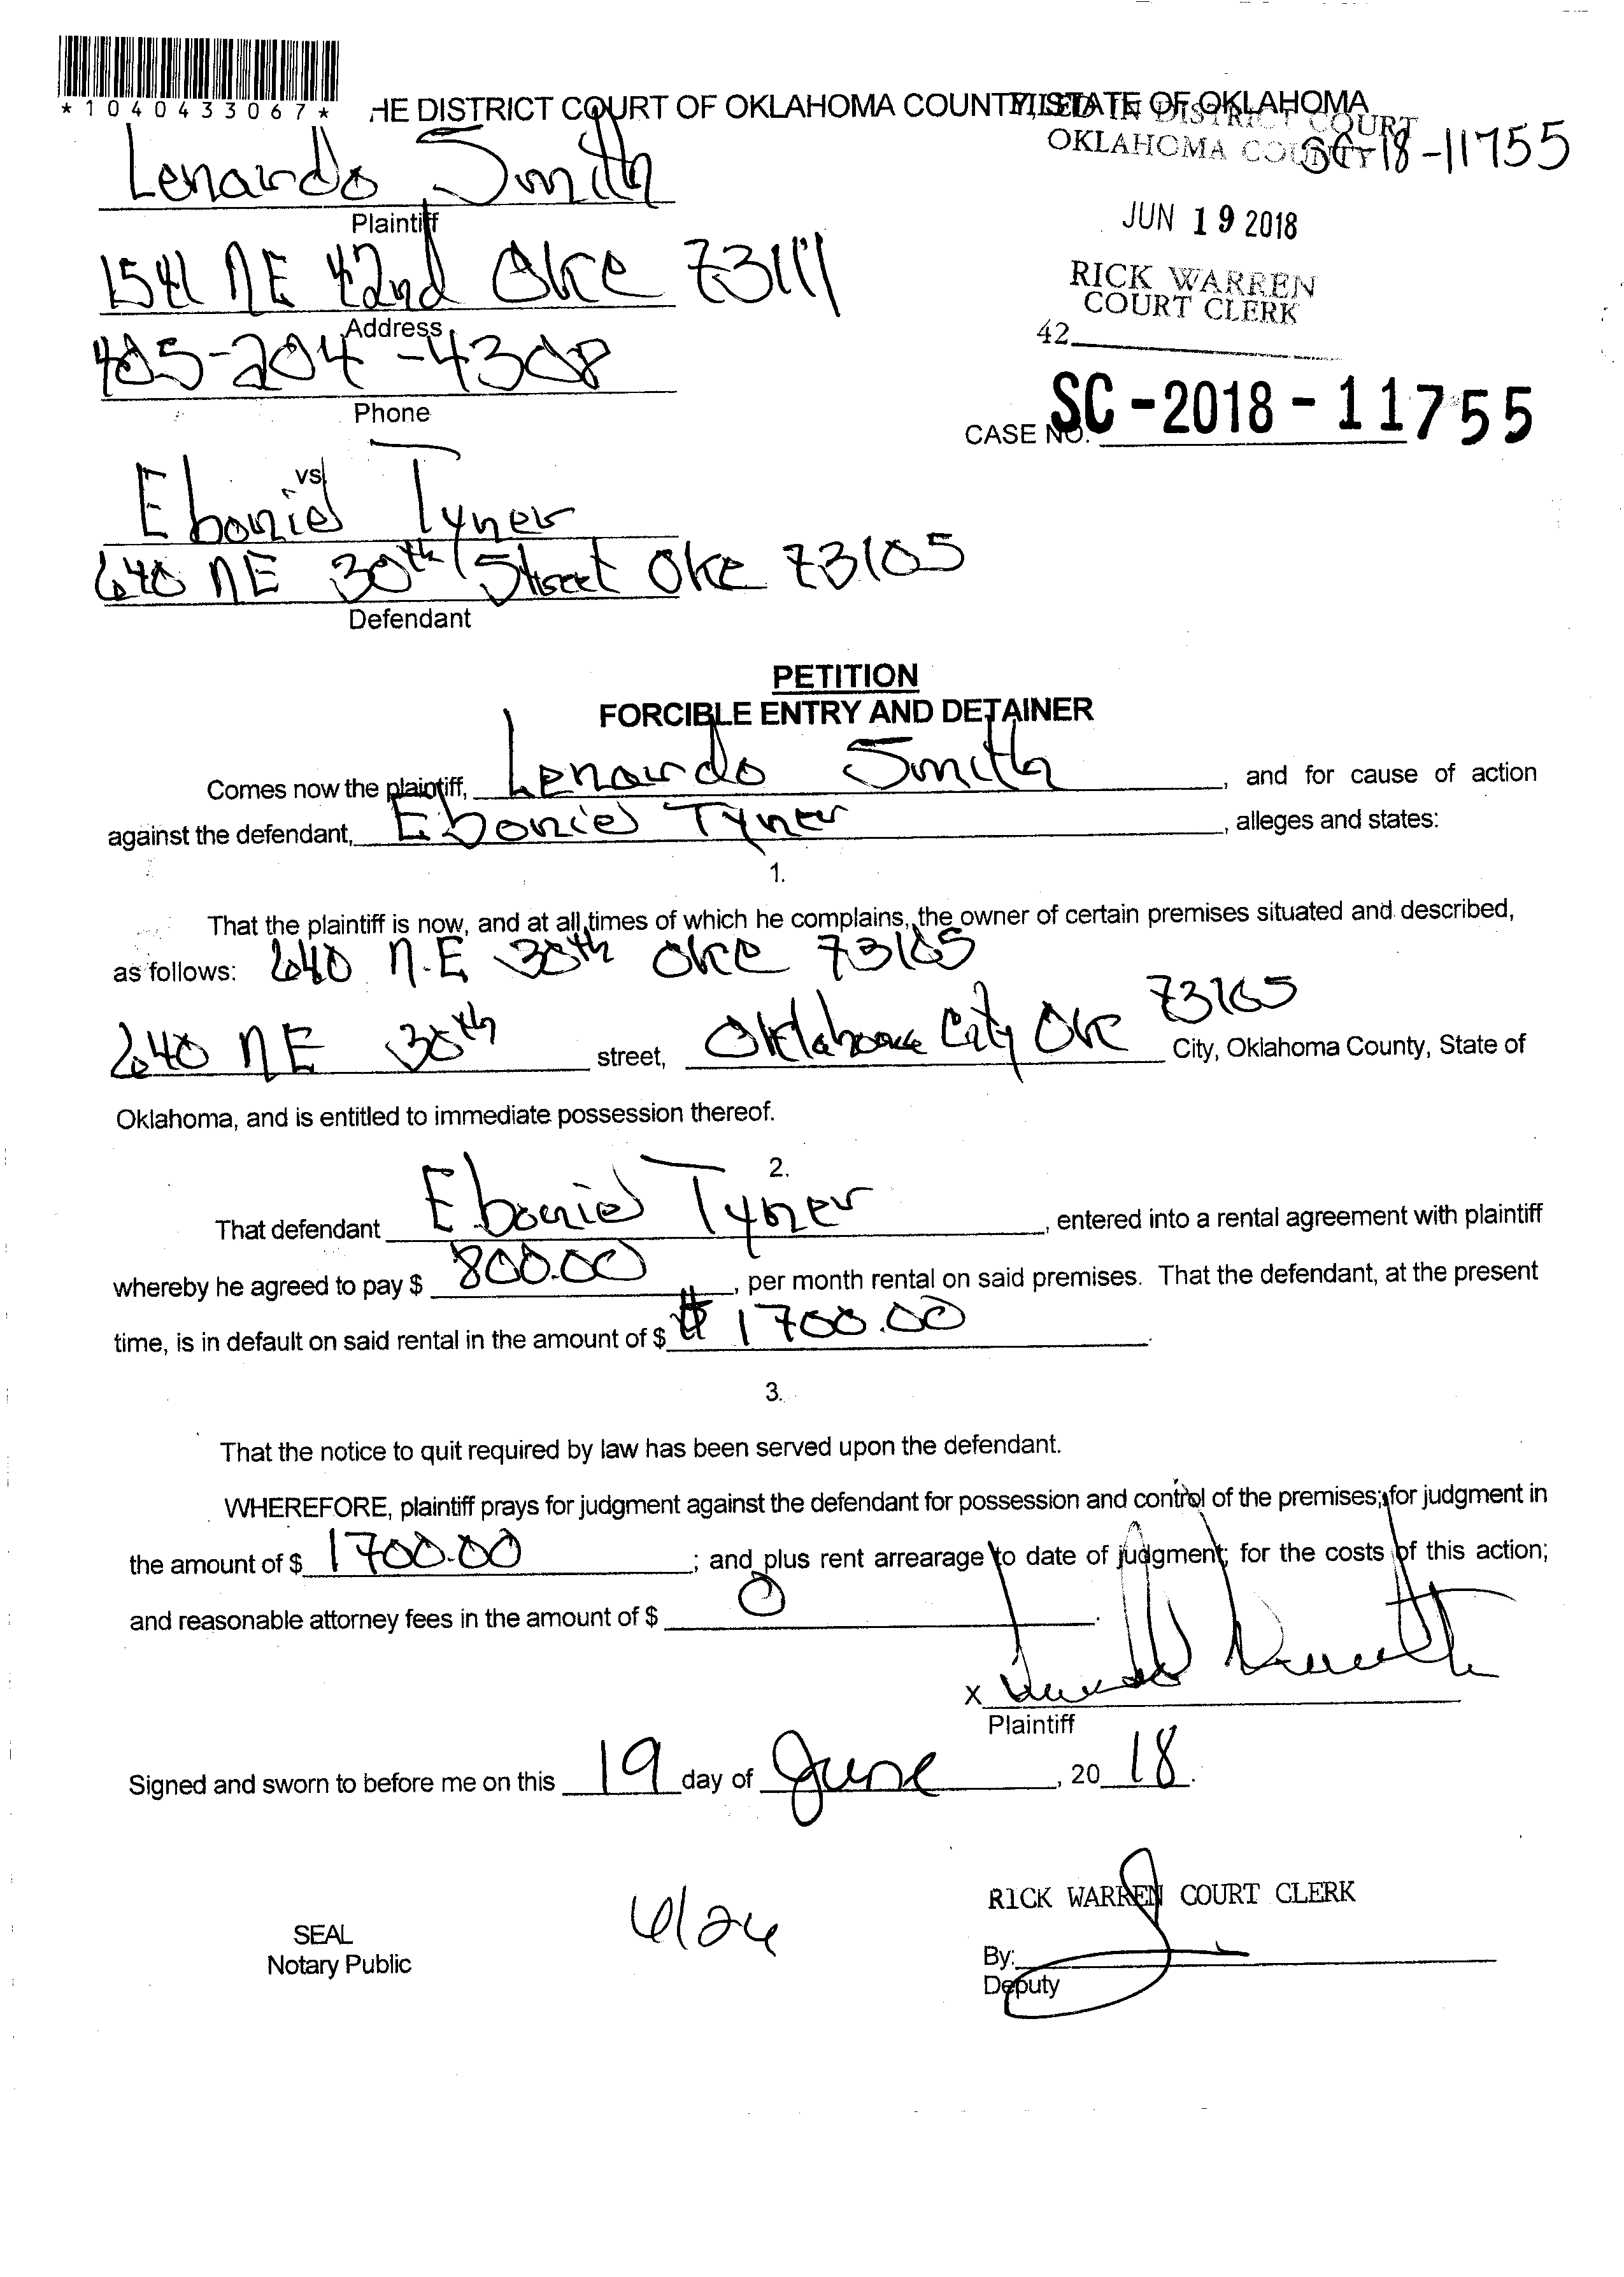 *1040433067*
HE DISTRICT COURT OF OKLAHOMA COUNTY, STATE OF OKLAHOMA
FILED IN DISTRICT COURT
OKLAHOMA COUNTY
SC-18-11755
Lenardo Smith
Plaintiff
JUN 19 2018
1541 NE 42nd OKC 73111
Address
RICK WARREN
COURT CLERK
42
405-204-4308
Phone
CASE NO. SC-2018-11755
vs
Ebonie Tyner
640 NE 30th Street OKC 73105
Defendant
PETITION
FORCIBLE ENTRY AND DETAINER
Comes now the plaintiff, Lenardo Smith, and for cause of action
against the defendant, Ebonie Tyner, alleges and states:
1.
That the plaintiff is now, and at all times of which he complains, the owner of certain premises situated and described,
as follows: 640 N.E 30th OKC 73105
73105
640 NE 30th street, Oklahoma City OK City, Oklahoma County, State of
Oklahoma, and is entitled to immediate possession thereof.
2.
That defendant Ebonie Tyner, entered into a rental agreement with plaintiff
whereby he agreed to pay $ 800.00, per month rental on said premises. That the defendant, at the present
time, is in default on said rental in the amount of $ $ 1700.00.
3.
That the notice to quit required by law has been served upon the defendant.
WHEREFORE, plaintiff prays for judgment against the defendant for possession and control of the premises; for judgment in
the amount of $ 1700.00; and plus rent arrearage to date of judgment; for the costs of this action;
and reasonable attorney fees in the amount of $ 0.
x
Plaintiff
Signed and sworn to before me on this 19 day of June, 20 18.
RICK WARREN COURT CLERK
6/26
SEAL
Notary Public
By:
Deputy